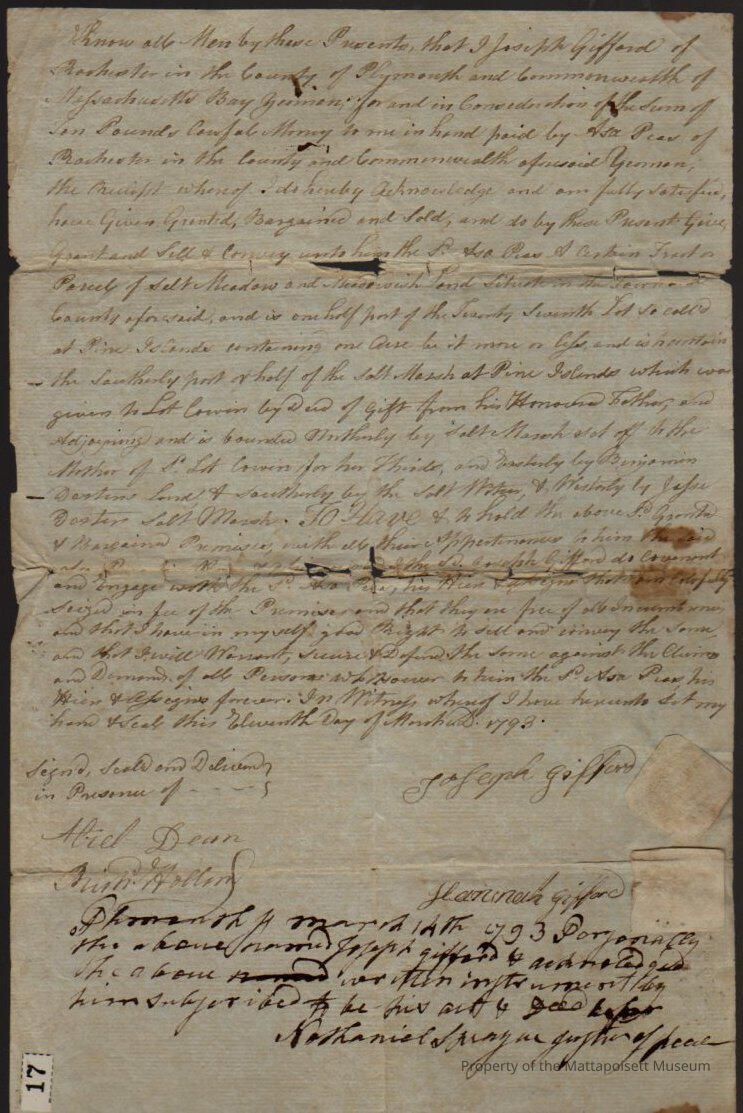 Know all Men by these Presents, that I Joseph Gifford of
Rochester in the County of Plymouth and Commonwealth of
Massachusetts Bay Yeoman; for and in Consideration of the Sum of
Ten Pounds Lawful Money to me in hand paid by Asa Peas of
Rochester in the County and Commonwealth aforesaid Yeoman,
the Receipt whereof I do hereby Acknowledge and am fully satisfied,
have Given Granted, Bargained and Sold, and do by these Presents Give,
Grant and Sell & Convey unto him the Sd. Asa Peas A Certain Tract or
Parcel of Salt Meadow and Land Situate in the Town and
County aforesaid, and is one half part of the Twenty Seventh Lot so call'd
at Pine Islands containing one Acre be it more or less, and is
the Southerly part or half of the Salt Marsh at Pine Islands which was
given to Lot by Deed of Gift from his Honoured Father, and
Adjoining and is bounded Northerly by Salt Marsh set off to the
Mother of Sd. Lot for her Thirds, and Easterly by Benjamin
Land & Southerly by the Salt Water, & Westerly by Jesse
Salt Marsh. To Have & to hold the above Sd. Granted
& Bargained Premises, with all their Appertenances to him the said
Asa & the Sd. Joseph Gifford do Covenant
and Engage with the Sd. Asa Peas, his Heirs & Assigns that I am Lawfully
Seized in fee of the Premises and that they are free of all Incumbrances,
and that I have in my self good Right to sell and convey the Same,
and that I will Warrant, Secure & Defend the Same against the Claims
and Demands of all Persons whosoever to him the Sd. Asa Peas his
Heirs & Assigns forever. In Witness whereof I have hereunto set my
hand & Seal this Eleventh Day of March AD. 1793.
Signd, Seald and Deliverd
in Presence of
Joseph Gifford
Abiel Dean
Hannah Gifford
Plymouth ss march 14th 1793 Personally
the above named Joseph gifford & acknoledged
the above written instrument by
him subscribed to be his act & Deed before
Nathaniel Sprague Justice of peace
Property of the Mattapoisett Museum
17